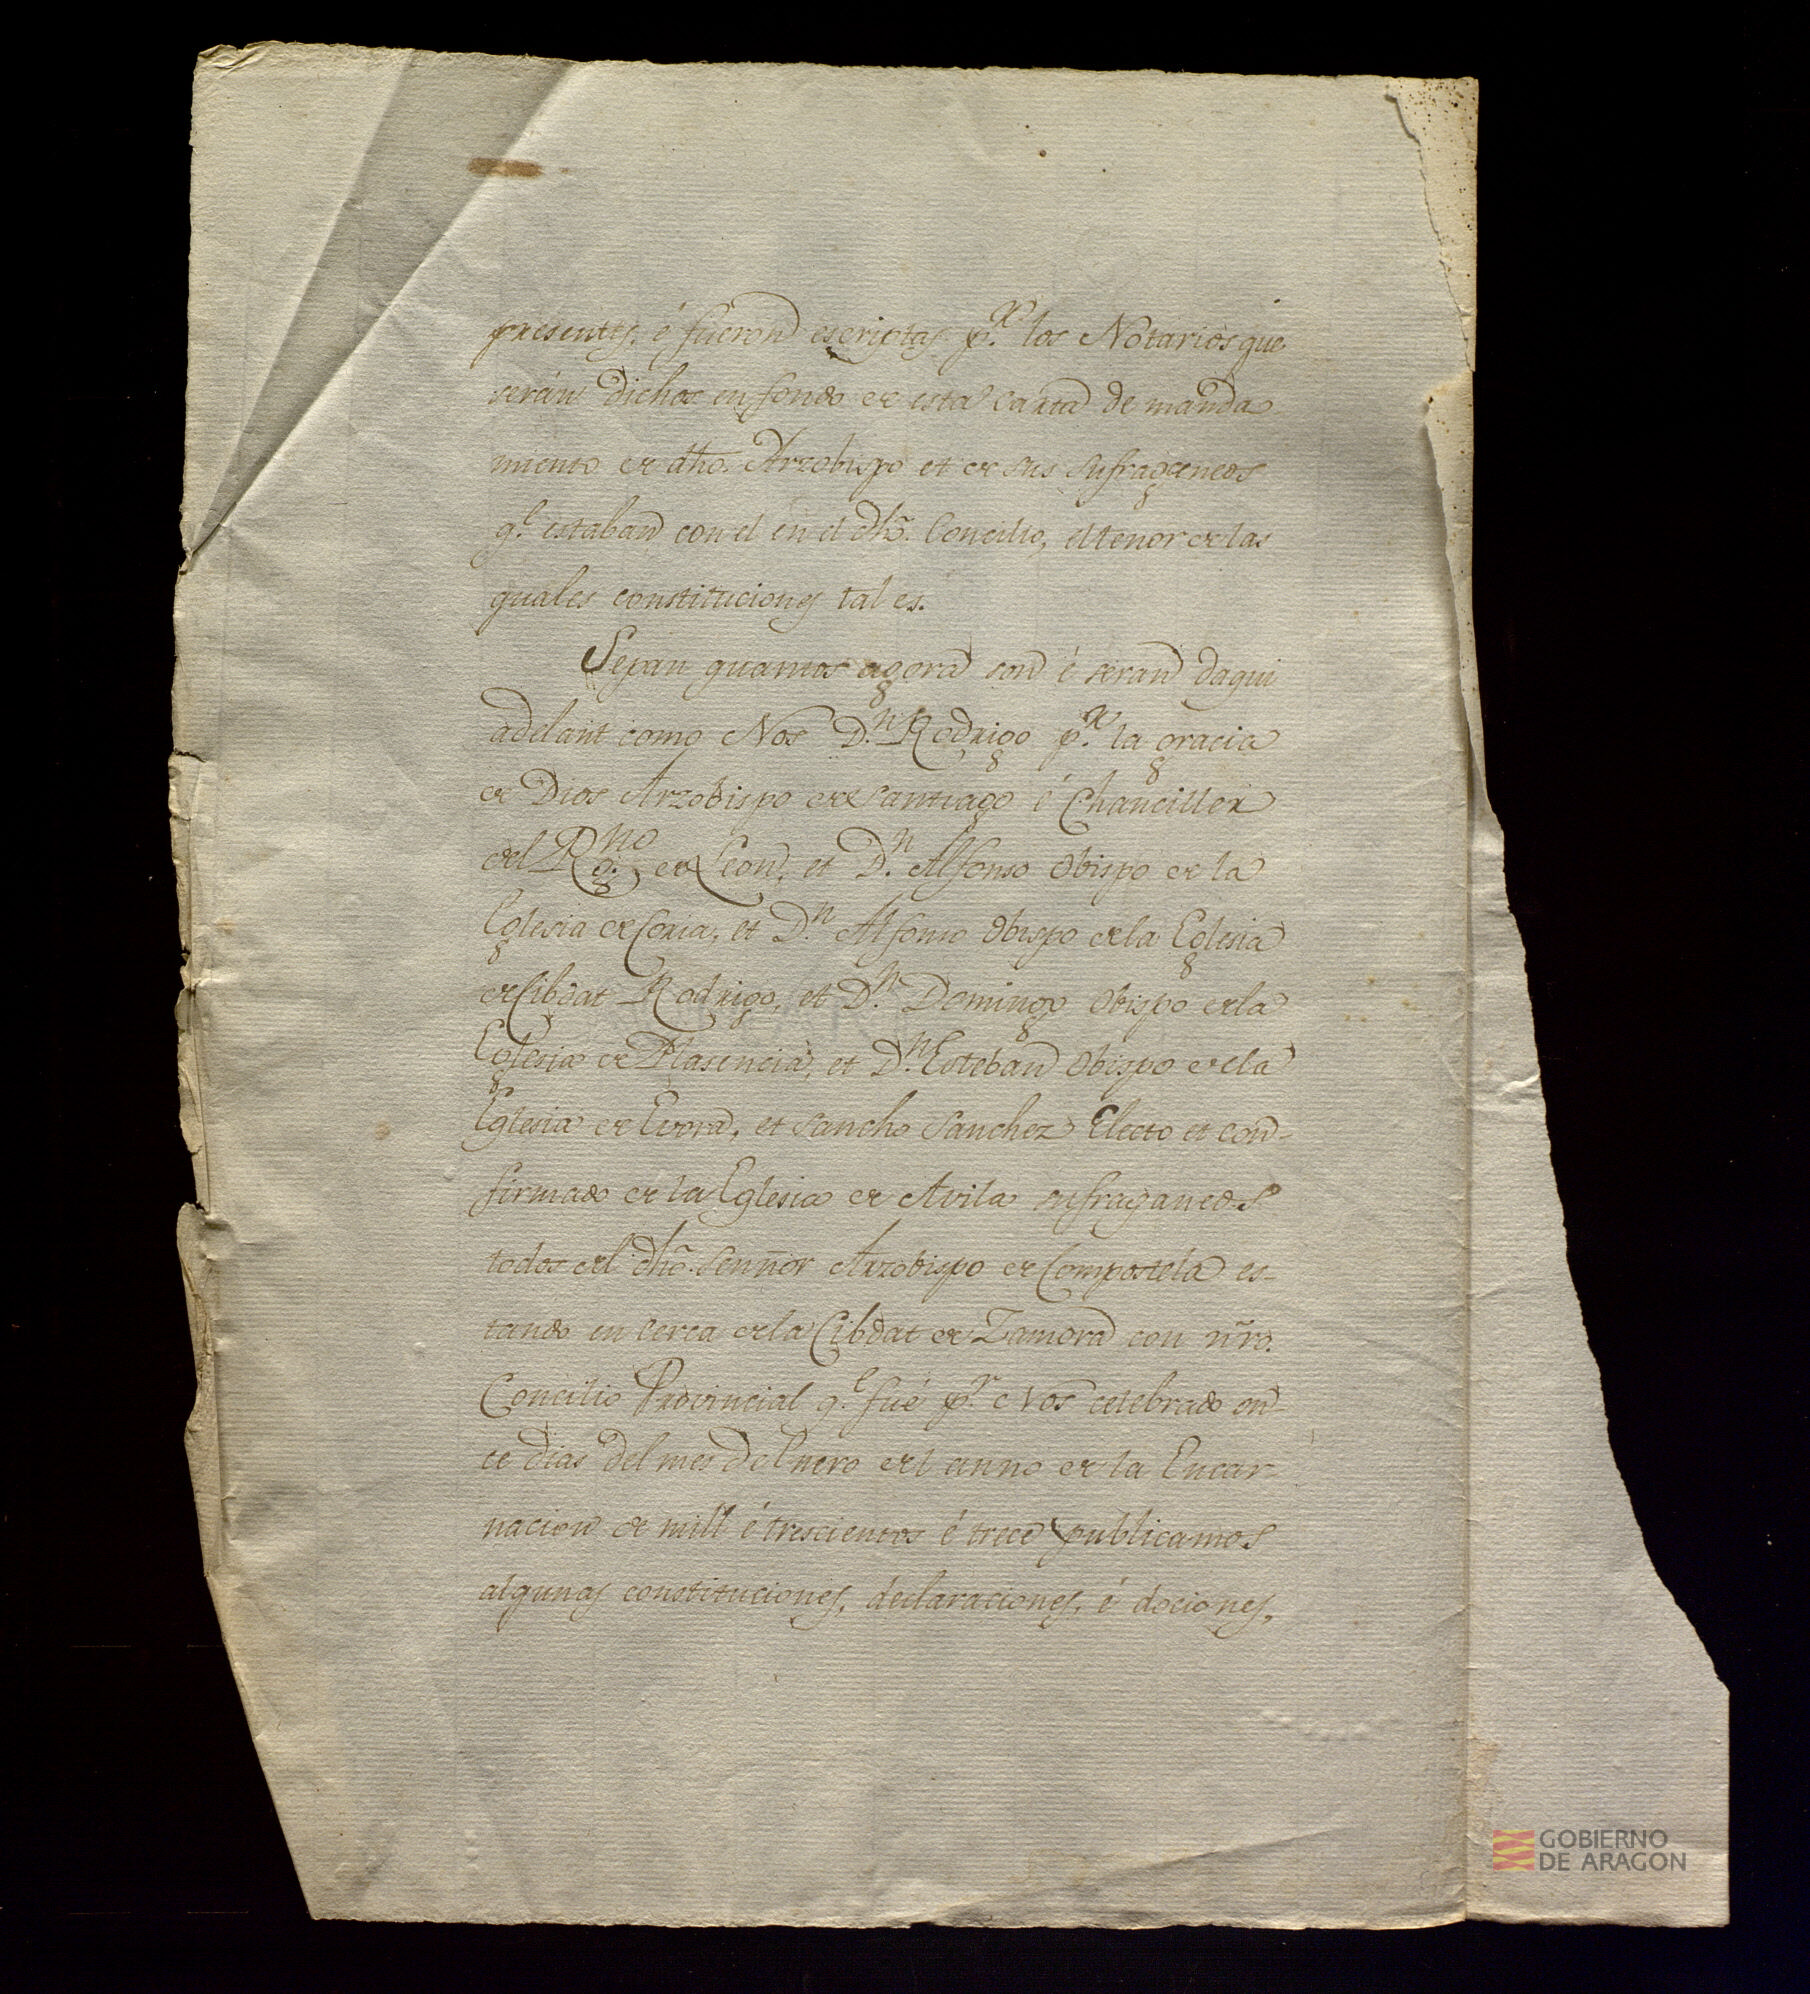 presentes, é fueron escriptas p.r los Notarios que
serán dichos en fondo de esta carta de manda
miento de dho. Arzobispo et de sus sufraganeos
q.e estaban con el en el dho. Concilio, el tenor de las
quales constituciones tal es.
Sepan quantos agora son é seran daqui
adelant como Nos D.n Rodrigo p.r la gracia
de Dios Arzobispo de Santiago é Chanciller
del Rg.no de Leon, et D.n Alfonso Obispo de la
Eglesia de Coria, et D.n Alfonso Obispo de la Eglesia
de Cibdat Rodrigo, et D.n Domingo Obispo de la
Eglesia de Plasencia, et D.n Esteban Obispo de la
Eglesia de Evora, et Sancho Sanchez Electo et con-
firmado de la Eglesia de Avila sufraganeos
todos del dho. Sennor Arzobispo de Compostela es-
tando en cerca de la Cibdat de Zamora con nro.
Concilio Provincial q.e fué p.r Nos celebrado on-
ce dias del mes de Enero del anno de la Encar-
nacion de mill é trescientos é trece publicamos
algunas constituciones, declaraciones, é dociones,
GOBIERNO
DE ARAGON